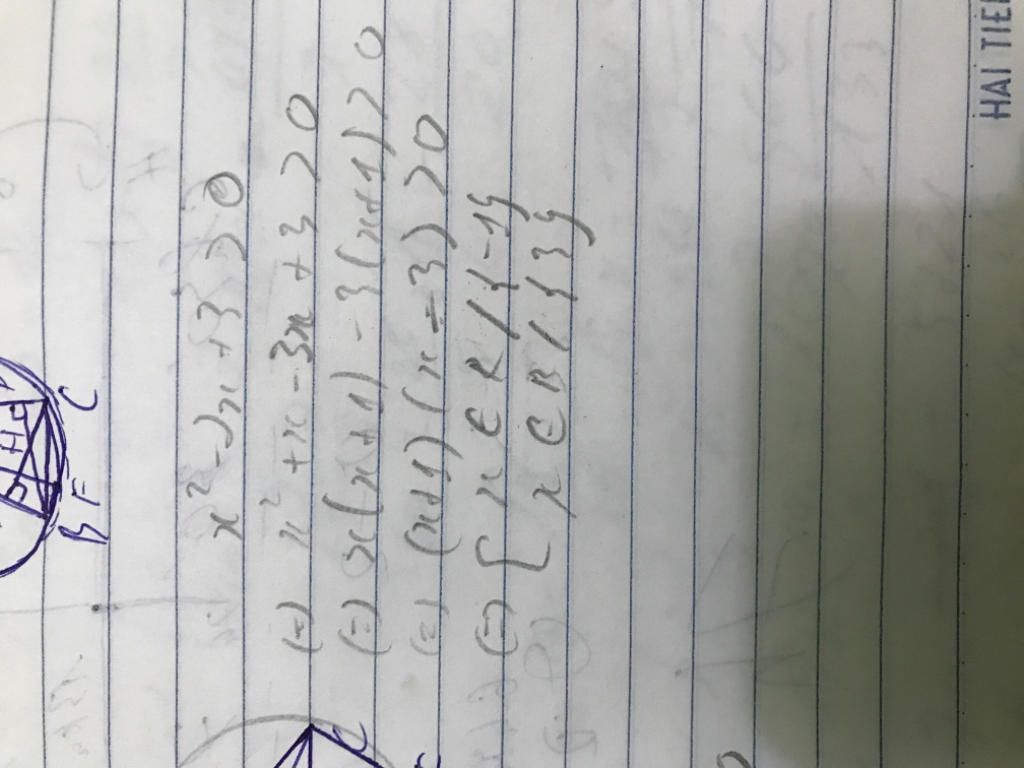 x² - 2x + 3 > 0
(=) x² + x - 3x + 3 > 0
(=) x(x+1) - 3(x+1) > 0
(=) (x+1)(x-3) > 0
(=) [ x ∈ R / {-1}
x ∈ R / {3}
HAI TIE
C
F
B
H